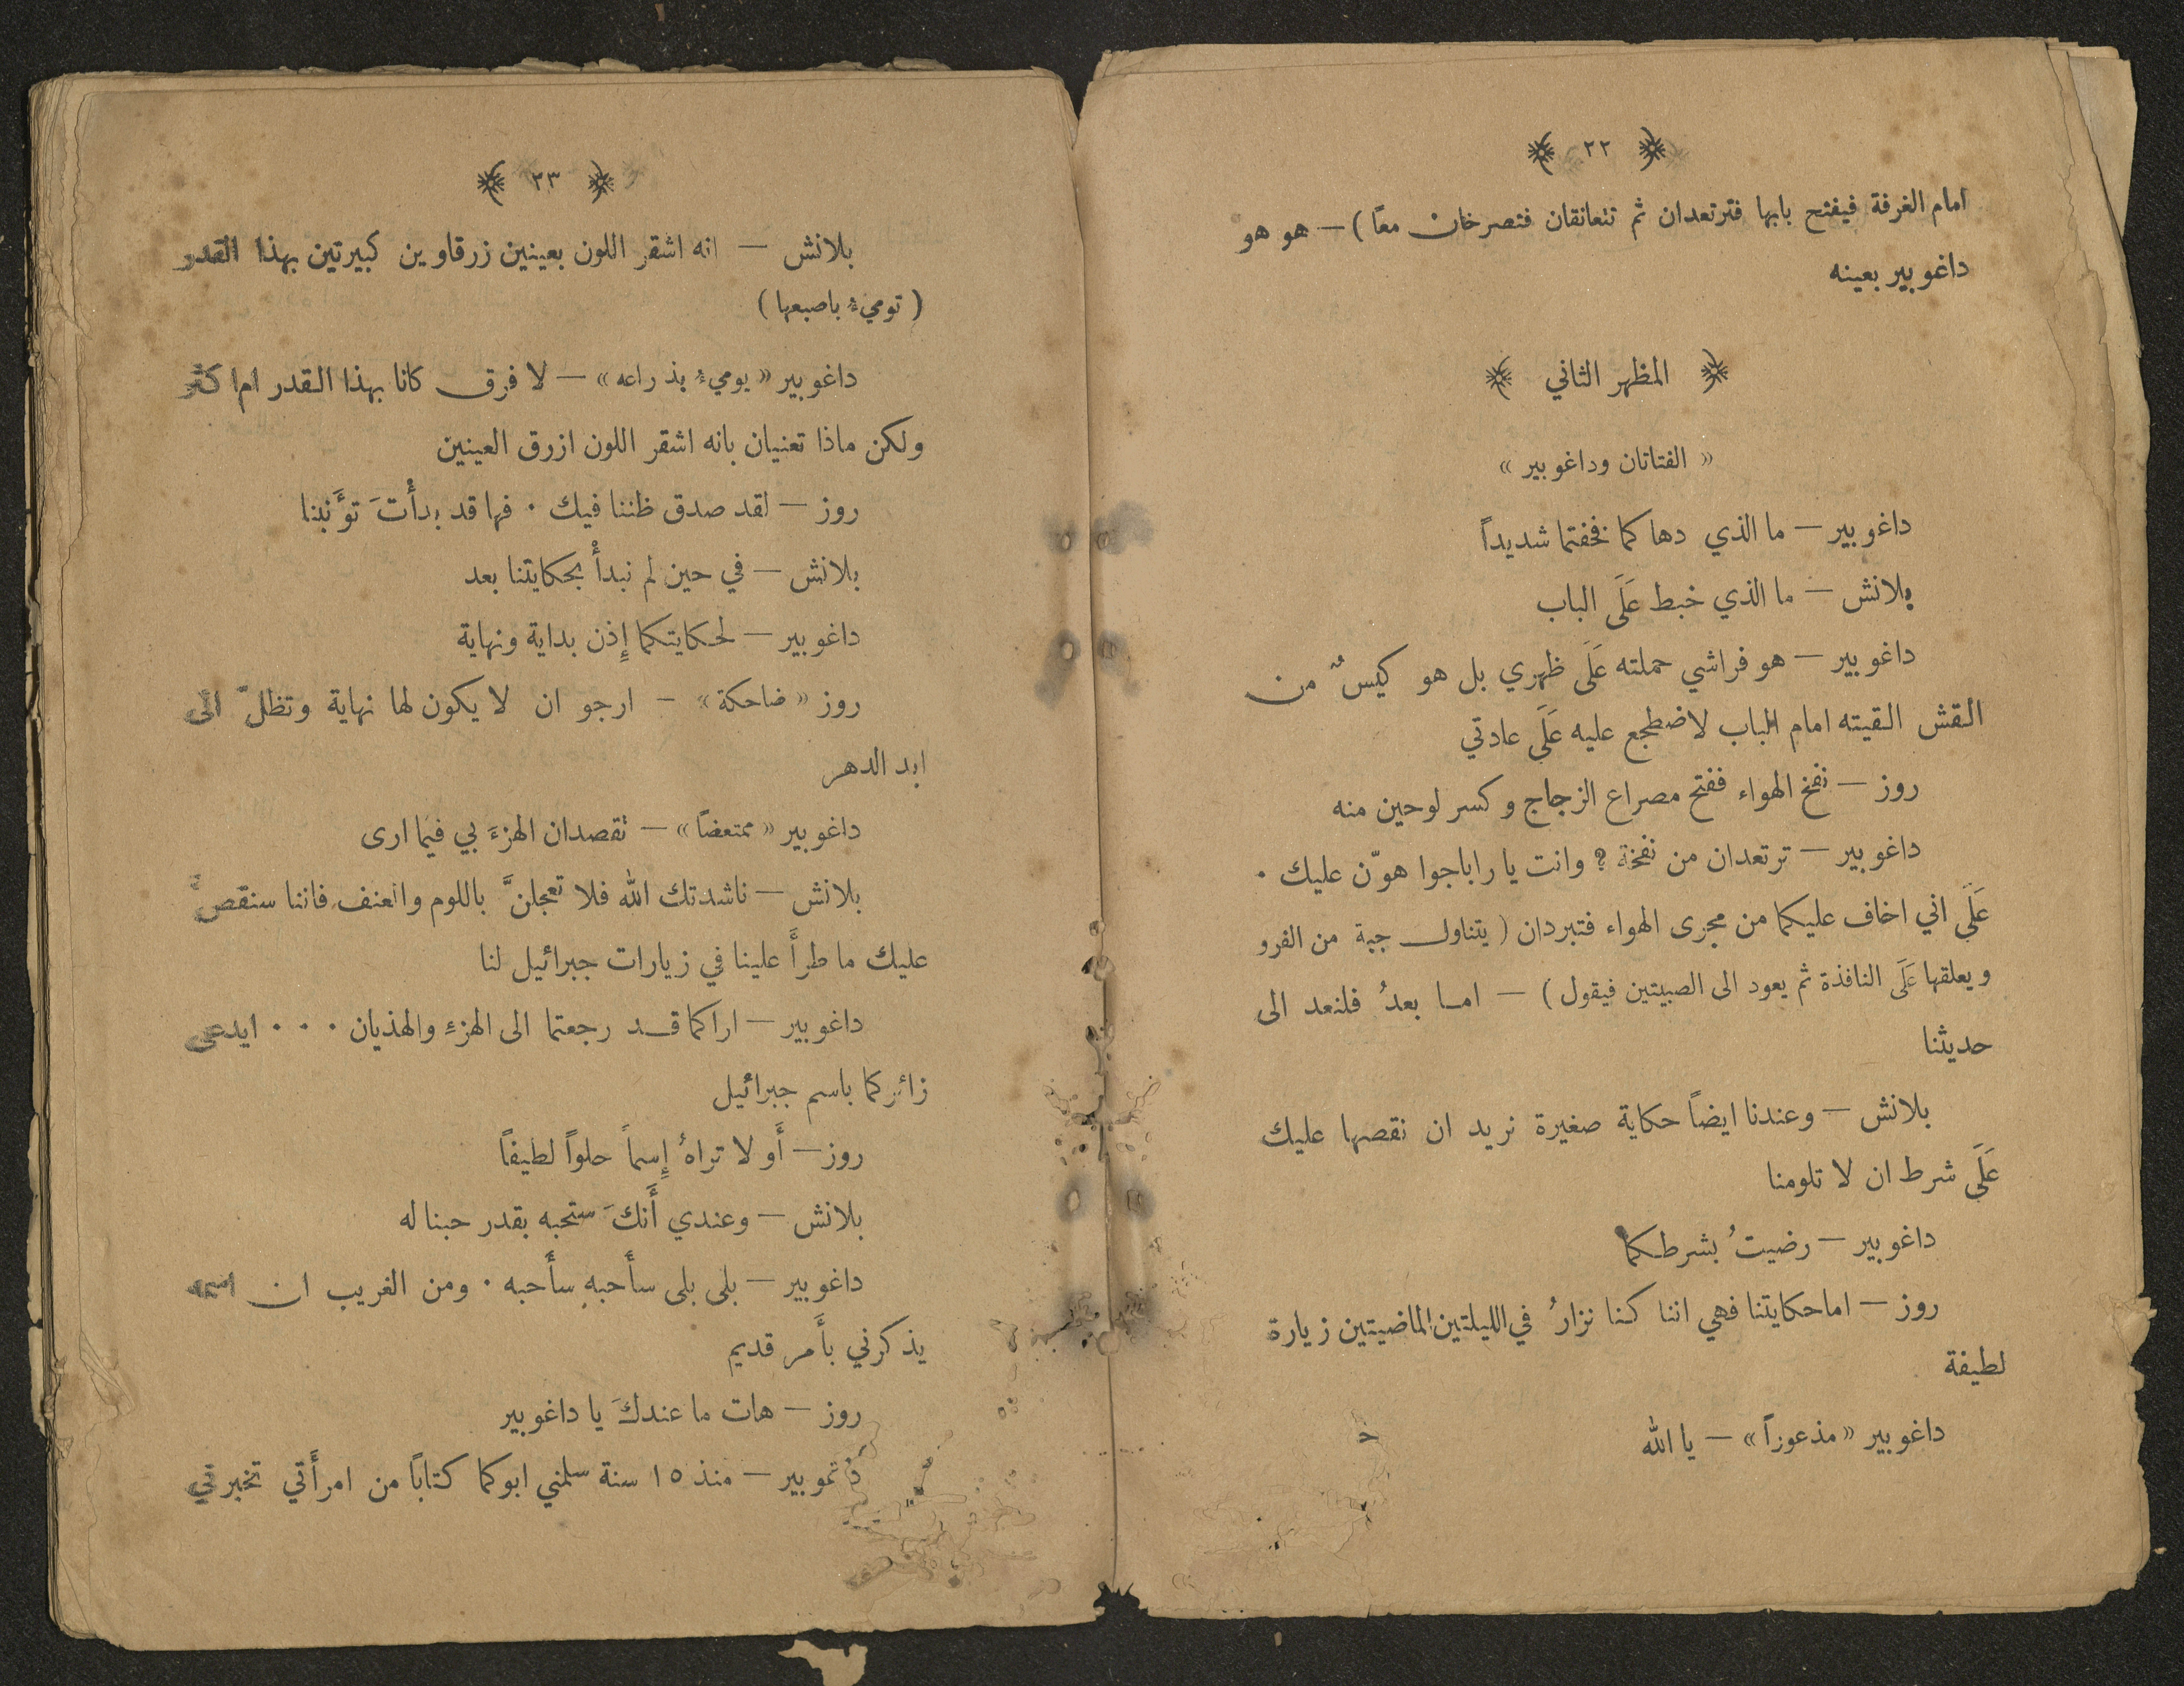 ﴿ ٢٢ ﴾
امام الغرفة فيفتح بابها فترتعدان ثم تتعانقان فتصرخان معًا ) — هو هو
داغوبير بعينه
﴿ المظهر الثاني ﴾
« الفتاتان وداغوبير »
داغوبير — ما الذي دهاكما فخفتما شديداً
بلانش — ما الذي خبط عَلَى الباب
داغوبير — هو فراشي حملته عَلَى ظهري بل هو كيسٌ من
القش القيته امام الباب لاضطجع عليه عَلَى عادتي
روز — نفخ الهواء ففتح مصراع الزجاج وكسر لوحين منه
داغوبير — ترتعدان من نفخة ؟ وانت يا راباجوا هوّن عليك ·
عَلَى اني اخاف عليكما من مجرى الهواء فتبردان ( يتناول جبة من الفرو
ويعلقها عَلَى النافذة ثم يعود الى الصبيتين فيقول ) — اما بعدُ فلنعد الى
حديثنا
بلانش — وعندنا ايضاً حكاية صغيرة نريد ان نقصها عليك
عَلَى شرط ان لا تلومنا
داغوبير — رضيتُ بشرطكما
روز — اما حكايتنا فهي اننا كنا نزارُ في الليلتين الماضيتين زيارة
لطيفة
داغوبير « مذعوراً » — يا الله
﴿ ٢٣ ﴾
بلانش — انه اشقر اللون بعينين زرقاوين كبيرتين بهذا القدر
( توميءُ باصبعها )
داغوبير « يوميءُ بذراعه » — لا فرق كانا بهذا القدر ام اكثر
ولكن ماذا تعنيان بانه اشقر اللون ازرق العينين
روز — لقد صدق ظننا فيك · فها قد بدأْتَ تؤَنبنا
بلانش — في حين لم نبدأْ بحكايتنا بعد
داغوبير — لحكايتكما إِذن بداية ونهاية
روز « ضاحكة » — ارجو ان لا يكون لها نهاية وتظلّ الى
ابد الدهر
داغوبير « ممتعضًا » — تقصدان الهزءَ بي فيما ارى
بلانش — ناشدتك الله فلا تعجلنَّ باللوم والعنف فاننا سنقصّ
عليك ما طرأَ علينا في زيارات جبرائيل لنا
داغوبير — اراكما قد رجعتما الى الهزءِ والهذيان · · · ايدعى
زائركما باسم جبرائيل
روز — أَولا تراهُ إِسماً حلواً لطيفاً
بلانش — وعندي أَنكَ ستحبه بقدر حبنا له
داغوبير — بلى بلى سأَحبهِ سأَحبه · ومن الغريب ان اسمه
يذكرني بأَمر قديم
روز — هات ما عندكَ يا داغوبير
داغوبير — منذ ١٥ سنة سلمني ابوكما كتابًا من امرأَتي تخبرني